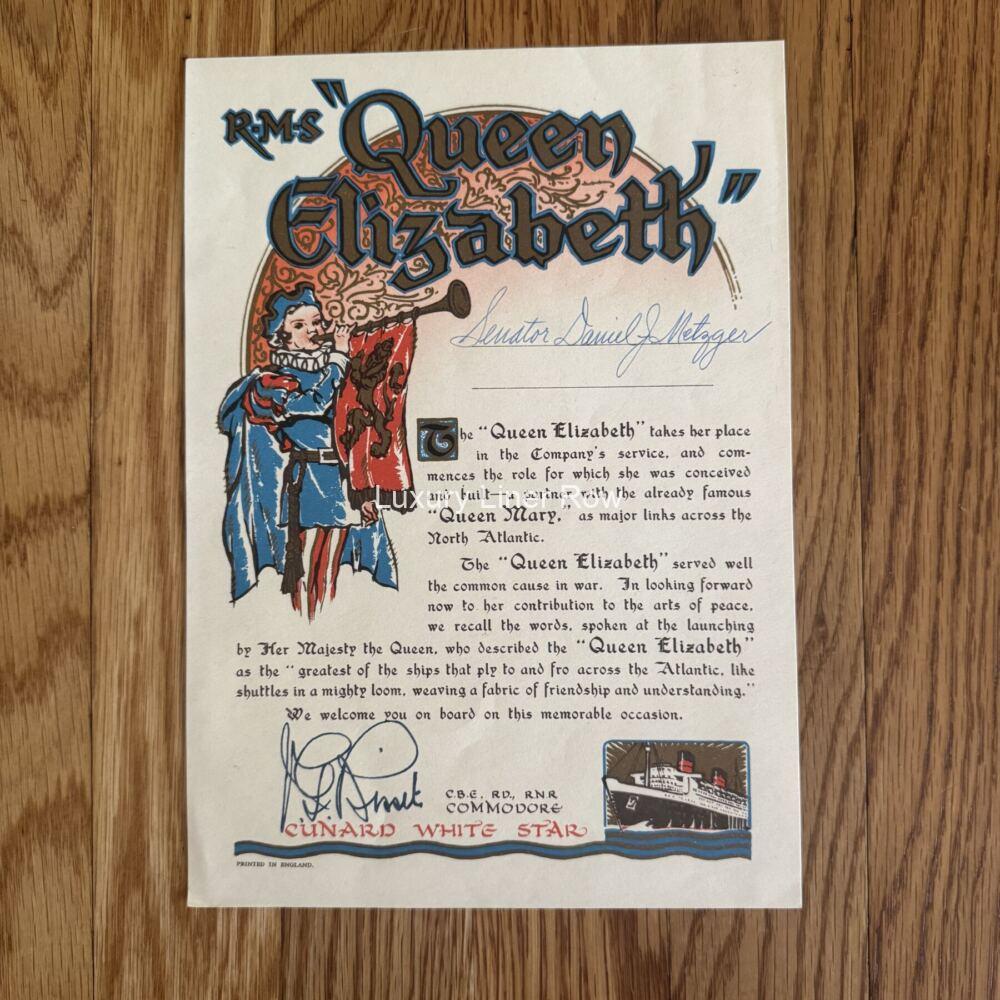 R·M·S "Queen
Elizabeth"
Senator Daniel J Metzger
The "Queen Elizabeth" takes her place
in the Company's service, and com-
mences the role for which she was conceived
and built—a partner with the already famous
"Queen Mary," as major links across the
North Atlantic.
The "Queen Elizabeth" served well
the common cause in war. In looking forward
now to her contribution to the arts of peace,
we recall the words, spoken at the launching
by Her Majesty the Queen, who described the "Queen Elizabeth"
as the "greatest of the ships that ply to and fro across the Atlantic, like
shuttles in a mighty loom, weaving a fabric of friendship and understanding."
We welcome you on board on this memorable occasion.
C.B.E., RD., R.N.R
COMMODORE
CUNARD WHITE STAR
PRINTED IN ENGLAND.
Luxury Liner Row